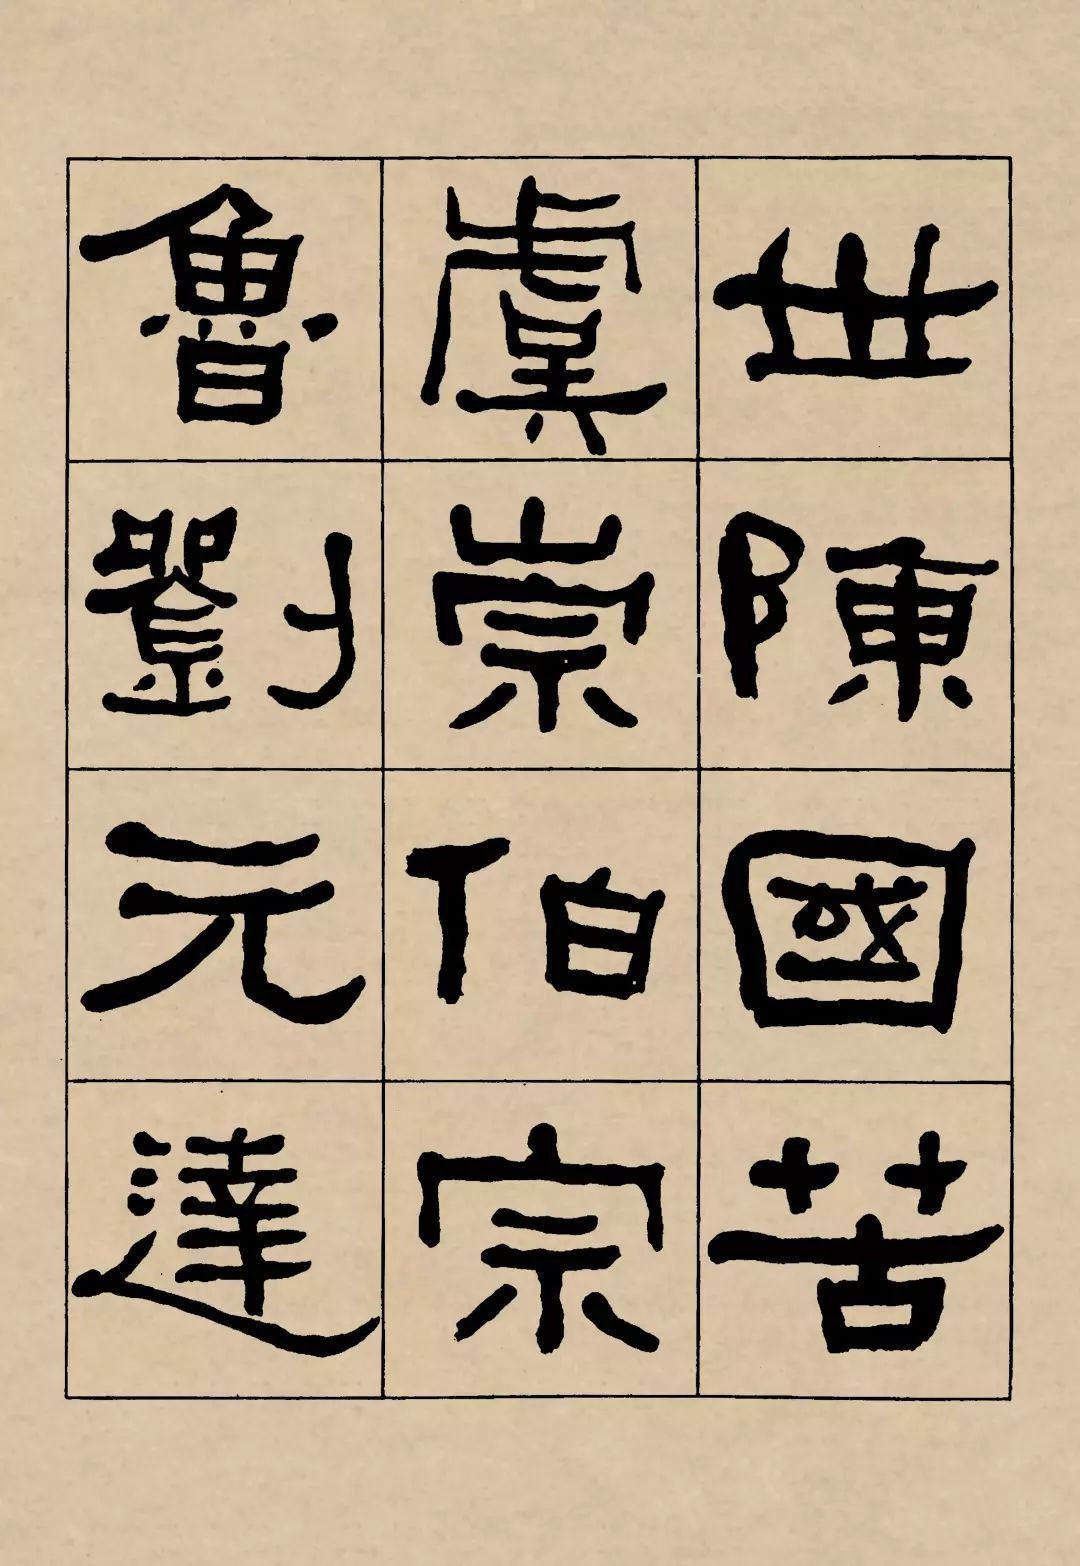 世陳國苦
虞崇伯宗
魯劉元達